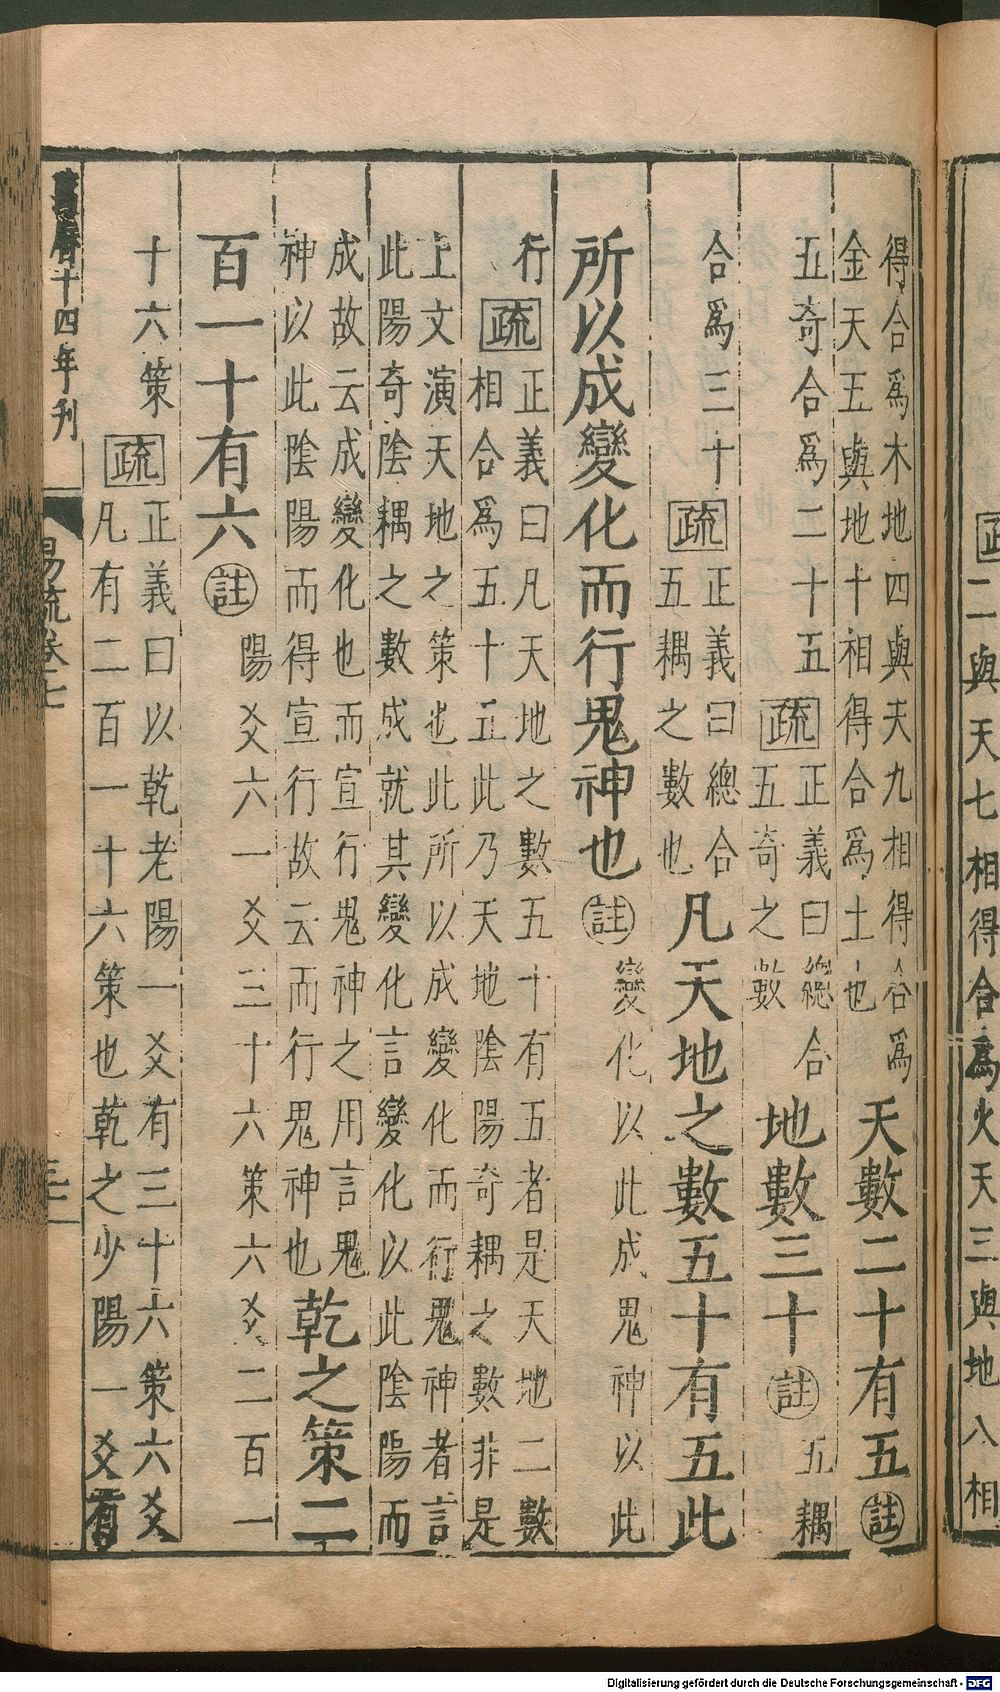 疏二與天七相得合為火天三與地八相
得合為木地四與天九相得合為
金天五與地十相得合為土也
天數二十有五註
五奇合為二十五疏
正義曰總合
五奇之數
地數三十註五耦
合為三十疏
正義曰總合
五耦之數也
凡天地之數五十有五此
所以成變化而行鬼神也註變化以此成鬼神以此
行疏
正義曰凡天地之數五十有五者是天地二數
相合為五十五此乃天地陰陽奇耦之數非是
上文演天地之策也此所以成變化而行鬼神者言
此陽奇陰耦之數成就其變化言變化以此陰陽而
成故云成變化也而宣行鬼神之用言鬼
神以此陰陽而得宣行故云而行鬼神也
乾之策二
百一十有六註陽爻六一爻三十六策六爻二百一
十六策疏
正義曰以乾老陽一爻有三十六策六爻
凡有二百一十六策也乾之少陽一爻有
萬曆十四年刊
易疏卷七
Digitalisierung gefördert durch die Deutsche Forschungsgemeinschaft - DFG